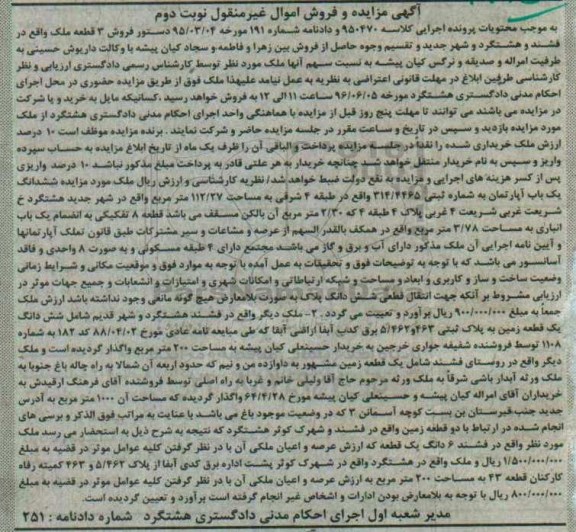 آگهی مزایده و فروش اموال غیرمنقول نوبت دوم
به موجب محتویات پرونده اجرایی کلاسه ۹۵۰۴۷۰ و دادنامه شماره ۱۹۱ مورخه ۹۵/۰۳/۰۴ دستور فروش ۳ قطعه ملک واقع در
فشند و هشتگرد و شهر جدید و تقسیم وجوه حاصل از فروش بین زهرا و فاطمه و سجاد کیان پیشه با وکالت داریوش حسینی به
طرفیت امراله و صدیقه و نرگس کیان پیشه به نسبت سهم آنها ملک مورد نظر توسط کارشناس رسمی دادگستری ارزیابی و نظر
کارشناسی طرفین ابلاغ در مهلت قانونی اعتراضی به نظریه به عمل نیامد علیهذا ملک فوق از طریق مزایده حضوری در محل اجرای
احکام مدنی دادگستری هشتگرد مورخه ۹۶/۰۶/۰۵ ساعت ۱۱ الی ۱۲ به فروش خواهد رسید. کسانیکه مایل به خرید و یا شرکت
در مزایده می باشند می توانند تا مهلت پنج روز قبل از مزایده با هماهنگی واحد اجرای احکام مدنی دادگستری هشتگرد از ملک
مورد مزایده بازدید و سپس در تاریخ و ساعت مقرر در جلسه مزایده حاضر و شرکت نمایند. برنده مزایده موظف است ۱۰ درصد
ارزش ملک خریداری شده را نقداً در جلسه مزایده پرداخت و الباقی آن را ظرف یک ماه از تاریخ ابلاغ مزایده به حساب سپرده
واریز و سپس به نام خریدار منتقل خواهد شد چنانچه خریدار به هر علتی قادر به پرداخت مبلغ مذکور نباشد ۱۰ درصد واریزی
پس از کسر هزینه های اجرایی و مزایده به نفع دولت ضبط خواهد شد/ نظریه کارشناسی و ارزش ریال ملک مورد مزایده ششدانگ
یک باب آپارتمان به شماره ثبتی ۳۱۴/۴۴۶۵ واقع در طبقه ۴ شرقی به مساحت ۱۱۲/۲۷ متر مربع واقع در شهر جدید هشتگرد خ
شریعت غربی شریعت ۴ غربی پلاک ۴ طبقه ۴ که ۲/۳۰ متر مربع آن بالکن مسقف می باشد قطعه ۸ تفکیکی به انضمام یک باب
انباری به مساحت ۳/۷۸ متر مربع واقع در همکف بالقدر السهم از عرصه و مشاعات و سیر مشترکات طبق قانون تملک آپارتمانها
و آیین نامه اجرایی آن ملک مذکور دارای آب و برق و گاز می باشد مجتمع دارای ۴ طبقه مسکونی و به صورت ۸ واحدی و فاقد
آسانسور می باشد که با توجه به توضیحات فوق و تحقیقات به عمل آمده با توجه به موارد فوق و موقعیت مکانی و شرایط زمانی
وضعیت ساخت و ساز و کاربری و ابعاد و مساحت و شبکه ارتباطاتی و امکانات شهری و امتیازات و انشعابات و جمیع جهات موثر در
ارزیابی مشروط بر آنکه جهت انتقال قطعی شش دانگ پلاک به صورت بلامعارض هیچ گونه مانعی وجود نداشته باشد ارزش ملک
جمعاً به مبلغ ۹۰۰/۰۰۰/۰۰۰ ریال برآورد و تعیین می گردد. ۲- ملک دیگر واقع در فشند هشتگرد و شهر قدیم شامل شش دانگ
یک قطعه زمین به پلاک ثبتی ۴۶۳و۵/۴۶۲ برق کدب آبفا اراضی آبفا که طی مبایعه نامه عادی مورخ ۸۸/۰۴/۰۲ کد ۱۸۲ به شماره
۱۱۰۸ توسط فروشنده شفیقه جواری خرجین به خریدار حسینعلی کیان پیشه به مساحت ۲۰۰ متر مربع واگذار گردیده است و ملک
دیگر واقع در روستای فشند شامل یک قطعه زمین مشهور به داوازده من و نیم که حدود اربعه آن شمالا به راه چاله باغ جنوبا به
ملک ورثه آبدار باشی شرقاً به ملک ورثه مرحوم حاج آقا ولیلی خانم و غربا به راه اصلی توسط فروشنده آقای فرهنگ ارفیدش به
خریداران آقای امراله کیان پیشه و حسینعلی کیان پیشه مورخ ۶۴/۴/۲۸ واگذار گردیده که مساحت آن ۱۰۰۰ متر مربع به آدرس
جدید جنب قبرستان بن بست کوچه آسمانی ۳ که در وضعیت موجود باغ می باشد با عنایت به مراتب فوق الذکر و برسی های
انجام شده در ارتباط با دو قطعه زمین واقع در فشند و شهرک کوثر هشتگرد که نتیجه به شرح ذیل به استحضار می رسد ملک
مورد نظر واقع در فشند ۶ دانگ یک قطعه که ارزش عرصه و اعیان ملکی آن با در نظر گرفتن کلیه عوامل موثر در قضیه به مبلغ
۱/۵۰۰/۰۰۰/۰۰۰ ریال و ملک واقع در هشتگرد واقع در شهرک کوثر پشت اداره برق کدی آبفا از پلاک ۵/۴۶۲ و ۴۶۳ کمیته رفاه
کارکنان قطعه ۴۳ به مساحت ۲۰۰ متر مربع به ارزش عرصه و اعیان ملکی آن با در نظر گرفتن کلیه عوامل موثر در قضیه به مبلغ
۸۰۰/۰۰۰/۰۰۰ ریال با توجه به بلامعارض بودن ادارات و اشخاص غیر انجام گرفته است برآورد و تعیین گردیده است.
مدیر شعبه اول اجرای احکام مدنی دادگستری هشتگرد شماره دادنامه : ۲۵۱